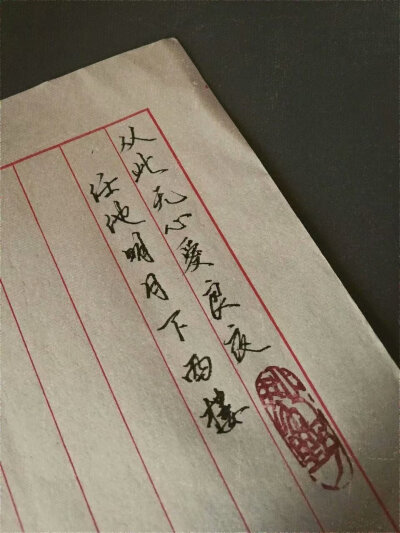 从此无心爱良夜
任他明月下西楼